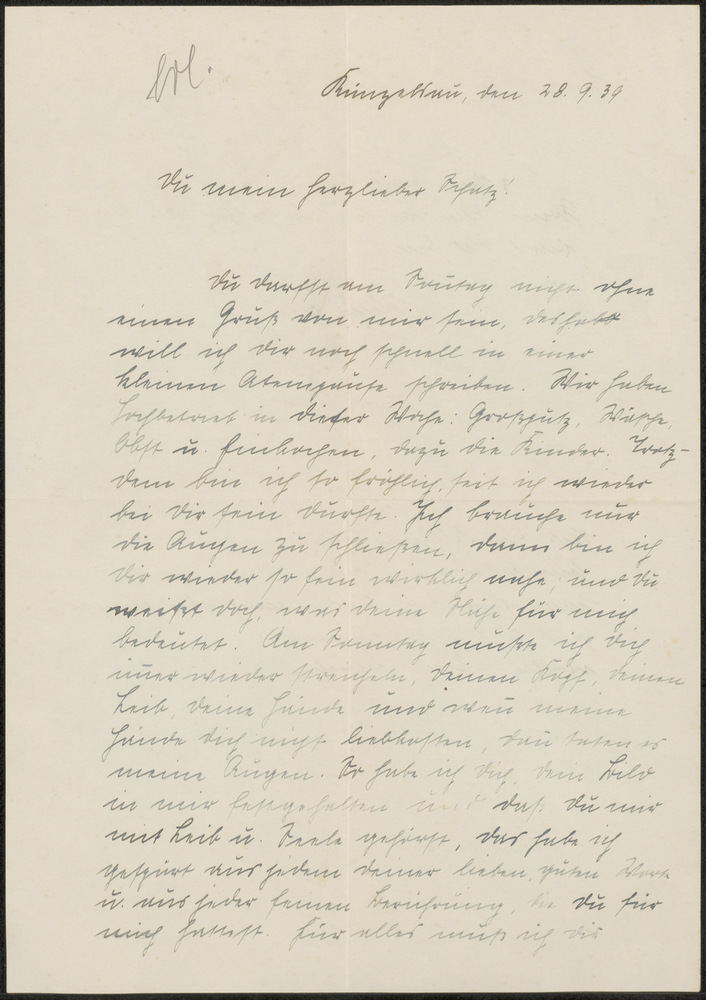 erl.
Künzelsau, den 28. 9. 39
Du mein herzlieber Schatz!
Du darfst am Sonntag nicht ohne
einen Gruß von mir sein, deshalb
will ich Dir noch schnell in einer
kleinen Atempause schreiben. Wir haben
Hochbetrieb in dieser Woche: Großputz, Wäsche,
Obst u. Einkochen, dazu die Kinder. Trotz-
dem bin ich so fröhlich, seit ich wieder
bei Dir sein durfte. Ich brauche nur
die Augen zu schließen, dann bin ich
Dir wieder so fein wirklich nahe, und Du
weißt doch, was Deine Nähe für mich
bedeutet. Am Sonntag mußte ich Dich
imer wieder streicheln, Deinen Kopf, Deinen
Leib, Deine Hände und wen meine
Hände Dich nicht liebkosten, dan taten es
meine Augen. So habe ich Dich, Dein Bild
in mir festgehalten und daß Du mir
mit Leib u. Seele gehörst, das habe ich
gespürt aus jedem Deiner lieben, guten Worte
u. aus jeder feinen Berührung, die Du für
mich hattest. Für alles muß ich Dir